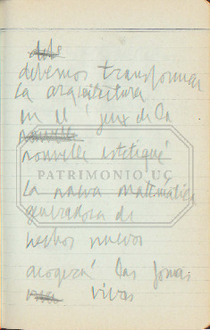 debemos transformar
la arquitectura
en el jeux de la
nouvelle estetique
PATRIMONIO UC
la nueva matemática
generadora de
hechos nuevos
acogerá las formas
vivas